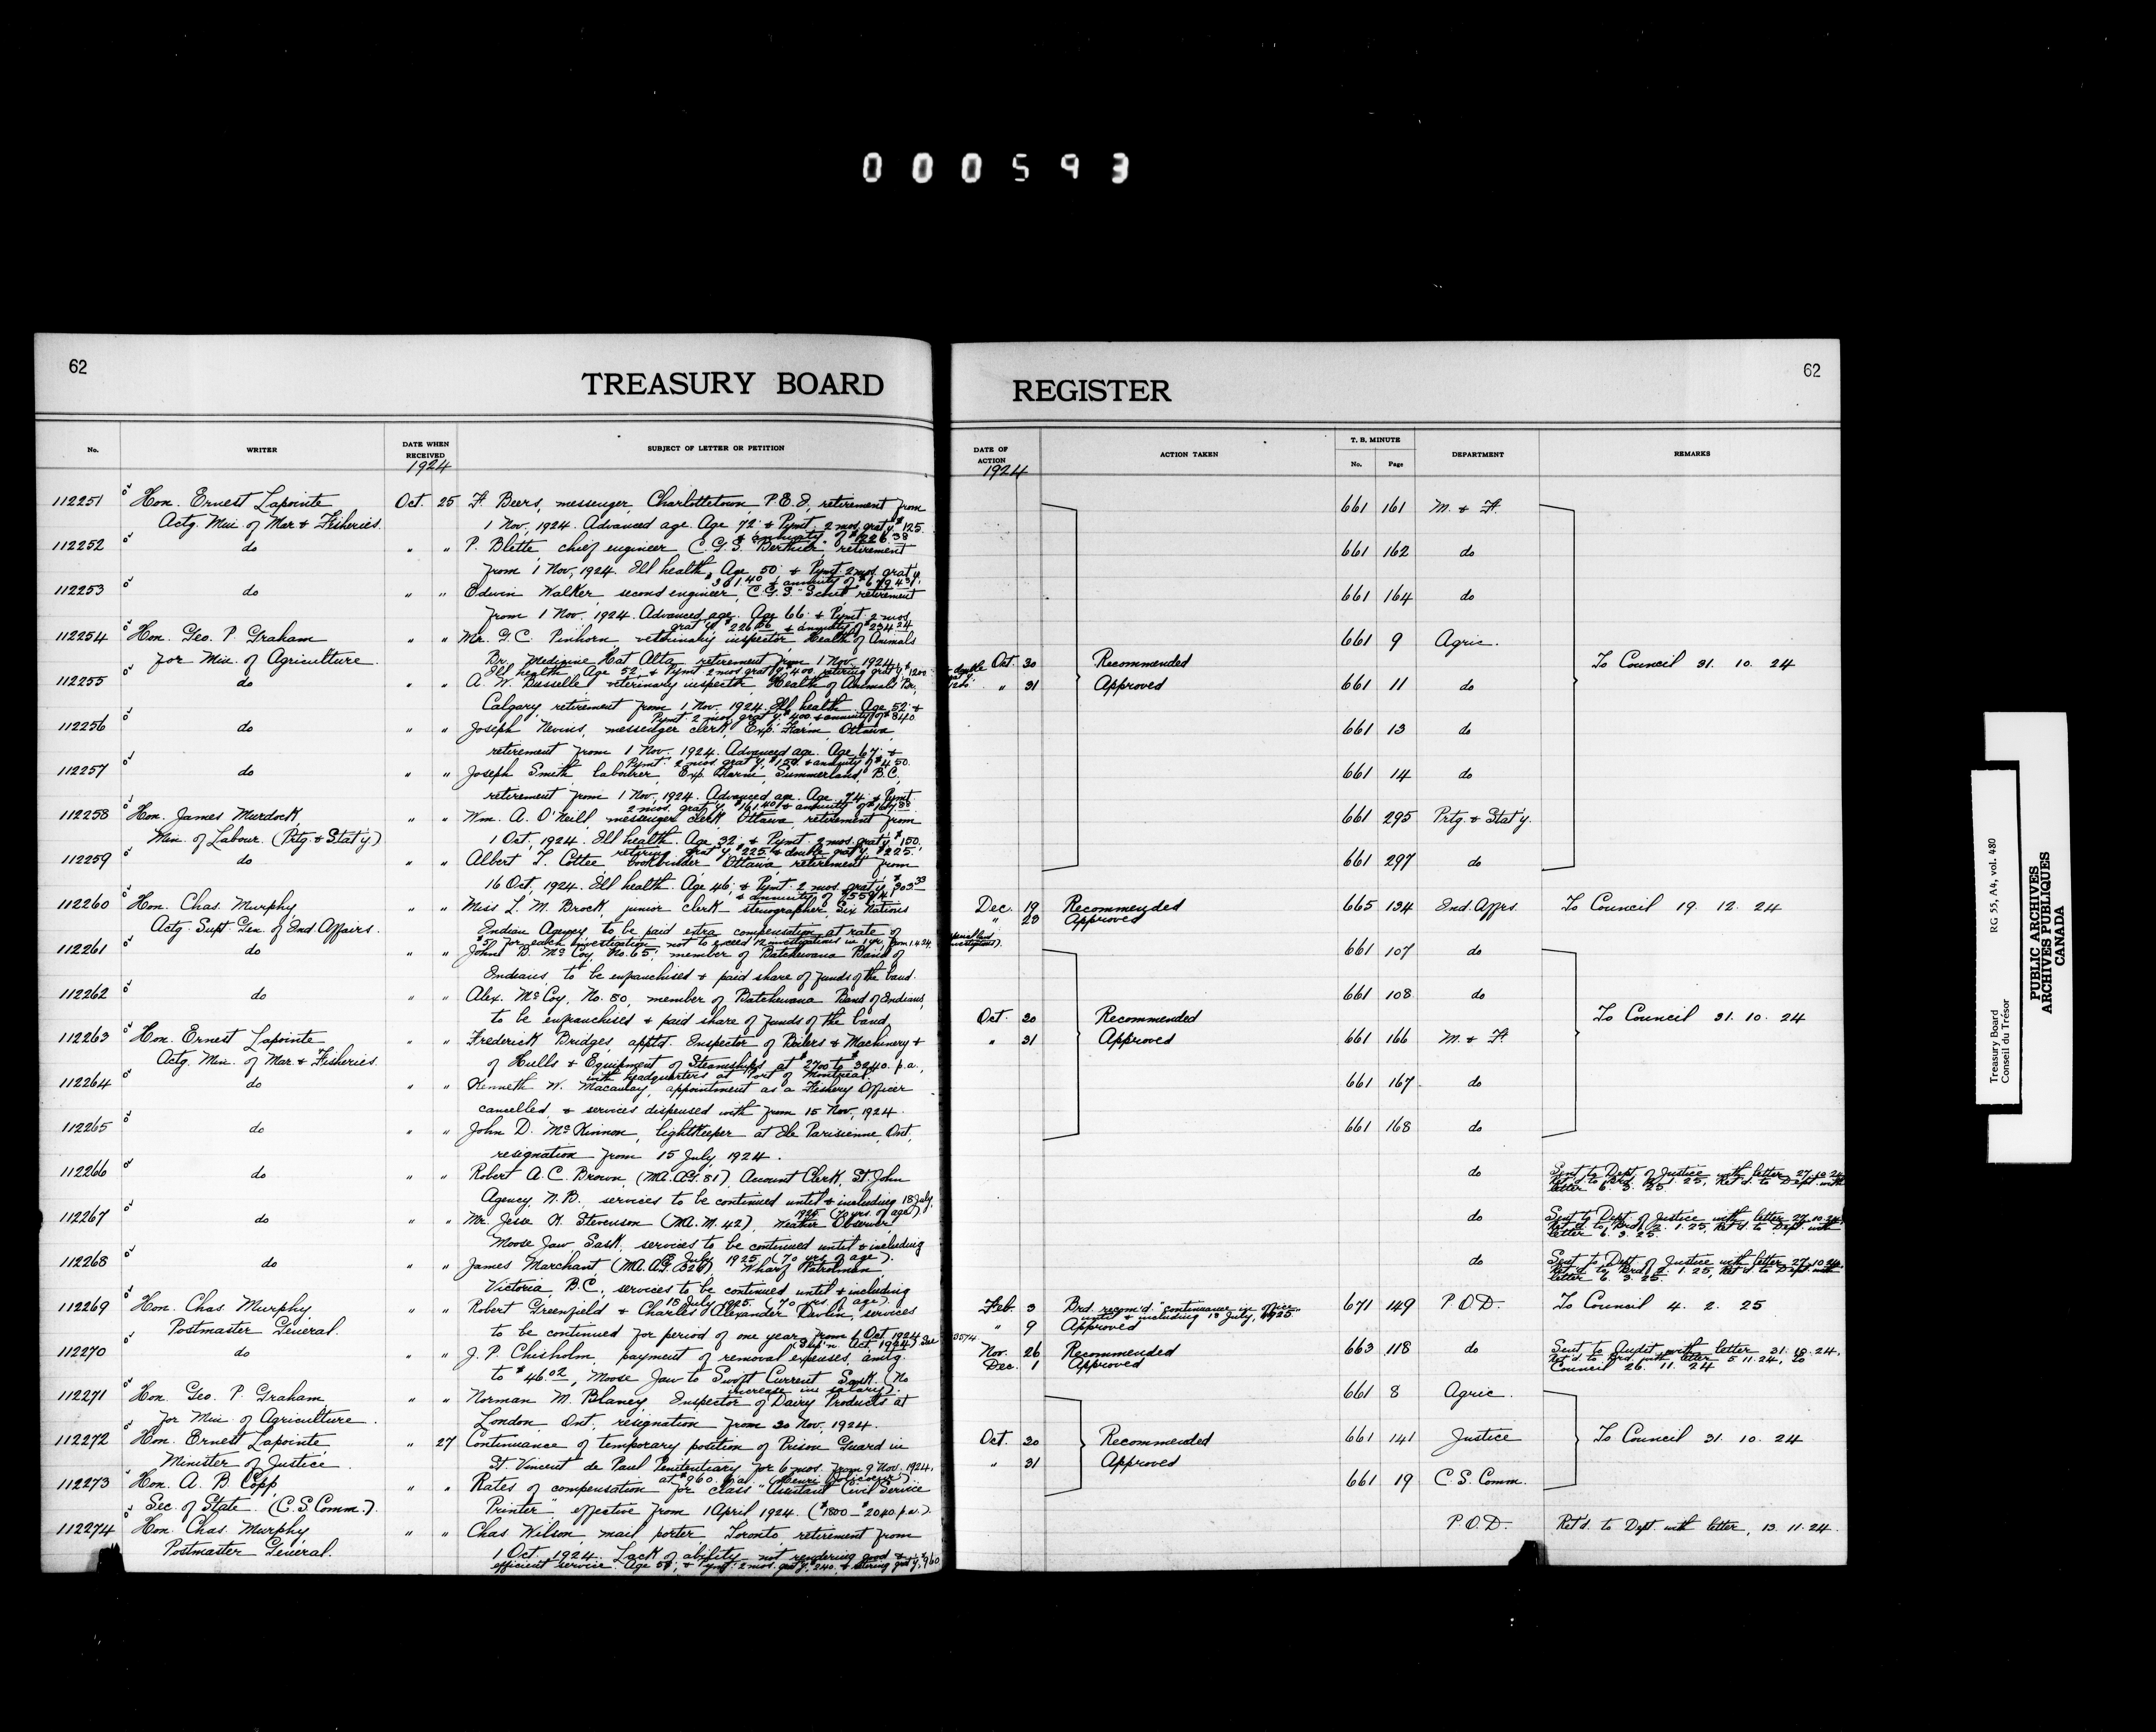 000593
62
TREASURY BOARD
No.
WRITER
DATE WHEN RECEIVED
1924
SUBJECT OF LETTER OR PETITION
112251 Hon. Ernest Lapointe Oct. 25 F. Beers, messenger, Charlottetown, P.E.I. retirement from
Actg. Min. of Mar & Fisheries. 1 Nov, 1924. Advanced age. Age 72 & Pymt. 2 mos grat'y $125
& annuity of $1226.38
112252 do " " P. Blette chief engineer C.G.S. "Berthier" retirement
from 1 Nov, 1924. Ill health, Age 50 & Pymt. 2 mos. grat'y
$301.40 & annuity of $679.43.
112253 do " " Edwin Walker second engineer, C.G.S. retirement
from 1 Nov. 1924. Advanced age. Age 66 & Pymt. 2 mos
grat'y $226.06 & annuity of $234.24
112254 Hon. Geo. P. Graham " " Mr. G.C. Pinhorn veterinary inspector, Health of Animals
for Min. of Agriculture. Br. Medicine Hat Alta retirement from 1 Nov. 1924.
Ill health Age 52 & Pymt. 2 mos grat'y $400, retiring grat'y $1200
112255 do " " A. W. Busselle veterinary inspector, Health of Animals Br,
Calgary retirement from 1 Nov. 1924. Ill health. Age 52 &
Pymt. 2 mos. grat'y $400 & annuity of $840
112256 do " " Joseph Nevins, messenger clerk, Exp. Farm, Ottawa,
retirement from 1 Nov. 1924. Advanced age. Age 67 &
Pymt. 2 mos grat'y $150 & annuity of $450.
112257 do " " Joseph Smith labourer Exp Farm, Summerland, B.C.
retirement from 1 Nov. 1924. Advanced age. Age 74 & Pymt
2 mos. grat'y $161.40 & annuity of
112258 Hon. James Murdock, " " Wm. A. O'Neill messenger clerk Ottawa retirement from
Min. of Labour. (Prtg. & Stat'y) 1 Oct. 1924. Ill health. Age 32 & Pymt. 2 mos grat'y $150,
retiring grat'y $225 & double grat'y $225.
112259 do " " Albert T. Cottee bookbinder Ottawa retirement from
16 Oct, 1924. Ill health. Age 46, & Pymt. 2 mos. grat'y $303.33
& annuity of
112260 Hon. Chas. Murphy " " Miss L. M. Brock, junior clerk-stenographer Six Nations
Actg. Supt Gen. of Ind. Affairs. Indian Agency to be paid extra compensation at rate of
$5 for each investigation not to exceed 12 investigations in 1 yr. from 1.4.24.
112261 do " " John B. McCoy, No. 65, member of Batchewana Band of
Indians to be enfranchised & paid share of funds of the band.
112262 do " " Alex. McCoy, No. 80, member of Batchewana Band of Indians
to be enfranchised & paid share of funds of the band,
112263 Hon. Ernest Lapointe " " Frederick Bridges, apptd. Inspector of Boilers & Machinery &
Actg. Min. of Mar & Fisheries. of Hulls & Equipment of Steamships at $2700 to $3240. p.a.,
with headquarters at Port of Montreal.
112264 do " " Kenneth W. Macaulay, appointment as a Fishery Officer
cancelled & services dispensed with from 15 Nov, 1924.
112265 do " " John D. McKinnon, lightkeeper at Ile Parisienne, Ont,
resignation from 15 July, 1924.
112266 do " " Robert A. C. Brown, (MA.AG.81) Account Clerk, St. John
Agency, N.B. services to be continued until & including 18 July,
1925 (70 yrs. of age).
112267 do " " Mr. Jesse K. Stevenson (MA.M.42), Weather Observer
Moose Jaw, Sask. services to be continued until & including
18 July 1925 (70 yrs of age).
112268 do " " James Marchant (MA.AG.326) Wharf Patrolman
Victoria, B.C., services to be continued until & including
18 July 1925. (70 yrs of age).
112269 Hon. Chas. Murphy " " Robert Greenfield & Charles Alexander Devlin, services
Postmaster General. to be continued for period of one year from 6 Oct 1924
(Sup'n Act, 1924) See
112270 do " " J. P. Chisholm, payment of removal expenses amtg.
to $46.02, Moose Jaw to Swift Current Sask. (No
increase in salary).
112271 Hon. Geo. P. Graham " " Norman M. Blaney, Inspector of Dairy Products at
for Min. of Agriculture. London Ont. resignation from 30 Nov. 1924.
112272 Hon. Ernest Lapointe, " 27 Continuance of temporary position of Prison Guard in
Minister of Justice. St. Vincent de Paul Penitentiary for 6 mos. from 9 Nov. 1924,
at $960. p.a.
112273 Hon. A. B. Copp, " " Rates of compensation for class "Assistant Civil Service
Sec. of State. (C.S. Comm.). Printer" effective from 1 April 1924 ($1800 - $2040 p.a.).
112274 Hon. Chas. Murphy " " Chas. Wilson, mail porter Toronto retirement from
Postmaster General. 1 Oct. 1924. Lack of ability not rendering good &
efficient service. Age 50; & Pymt. 2 mos. grat'y $240, & retiring grat'y $960
62
REGISTER
DATE OF ACTION
1924
ACTION TAKEN
T. B. MINUTE
No.
Page
DEPARTMENT
REMARKS
661 161 M. & F.
661 162 do
661 164 do
661 9 Agric.
& double
Oct. 30 Recommended To Council 31. 10. 24
" 31 Approved 661 11 do
661 13 do
661 14 do
661 295 Prtg. & Stat'y.
661 297 do
Dec. 19 Recommended 665 134 Ind. Affrs. To Council 19. 12. 24
" 23 Approved
661 107 do
661 108 do
Oct. 30 Recommended To Council 31. 10. 24
" 31 Approved 661 166 M. & F.
661 167 do
661 168 do
do Sent to Dept of Justice with letter 27.10.24
Ret'd. to Brd. 1.25, Ret'd. to Dept. with
letter 6. 3. 25.
do Sent to Dept of Justice with letter 27.10.24
Ret'd. to Brd. 2. 1.25, Ret'd. to Dept. with
letter 6. 3. 25.
do Sent to Dept of Justice with letter 27.10.24
Ret'd. to Brd. 2. 1.25, Ret'd. to Dept. with
letter 6. 3. 25.
Feb. 3 Brd. recom'd. "continuance in office 671 149 P.O.D. To Council 4. 2. 25
until & including 18 July, 1925
" 9 Approved
Nov. 26 Recommended 663 118 do Sent to Audit with letter 31. 10. 24,
Dec. 1 Approved Ret'd. to Brd. with letter 5.11.24, to
Council 26. 11. 24
661 8 Agric.
Oct. 30 Recommended 661 141 Justice To Council 31. 10. 24
" 31 Approved
661 19 C.S. Comm.
P.O.D. Ret'd. to Dept with letter, 13. 11. 24.
Treasury Board RG 55, A4, vol. 480
Conseil du Trésor
PUBLIC ARCHIVES
ARCHIVES PUBLIQUES
CANADA